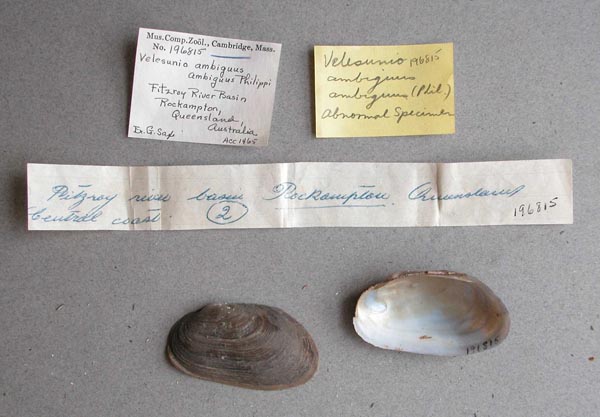 Mus. Comp. Zoöl., Cambridge, Mass.
No. 196815
Velesunio ambiguus
ambiguus Philippi
Fitzroy River Basin
Rockampton,
Queensland,
Australia
Ex. G. Sax
Acc 1965
Velesunio 196815
ambiguus
ambiguus (Phil.)
Abnormal Specimen
Fitzroy river basin Rockampton. Queensland
Central coast. 2
196815
196815